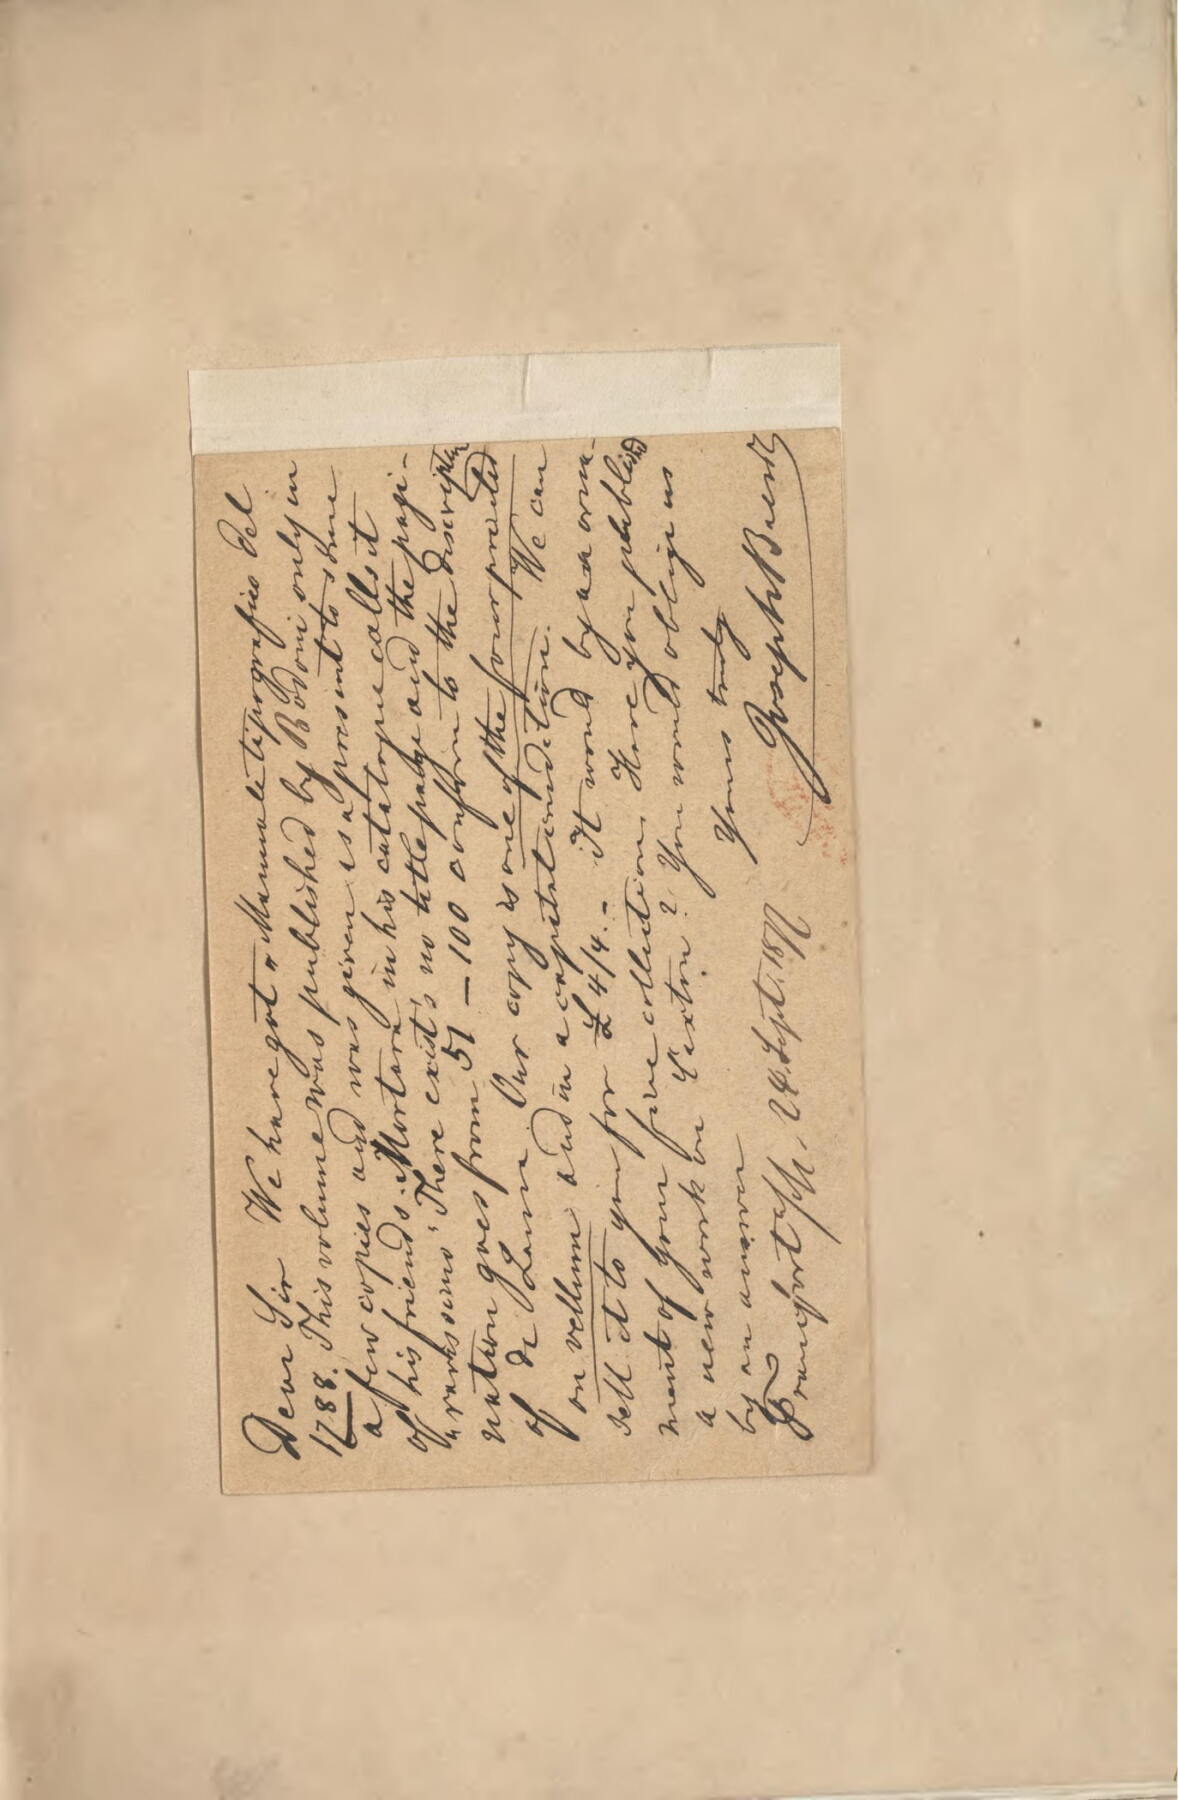 Dear Sir We have got "Manuale tipografico del
1788. This volume was published by Bodoni only in
a few copies and was given as a present to some
of his friends. Mortara in his catalogue calls it
"rarissimo" There exist's no titlepage and the pagi-
nation goes from 51 — 100 conform to the descripton
of de Lama. Our copy is one of the four printed
on vellum and in a capital condition. We can
sell it to you for £ 4/4.- it would by an orna-
ment of your fine collection. Have you published
a new work on Caxton? You would oblige us
by an answer
Yours truly
Frankfort a/M, 24. Sept. 187
Joseph Baer